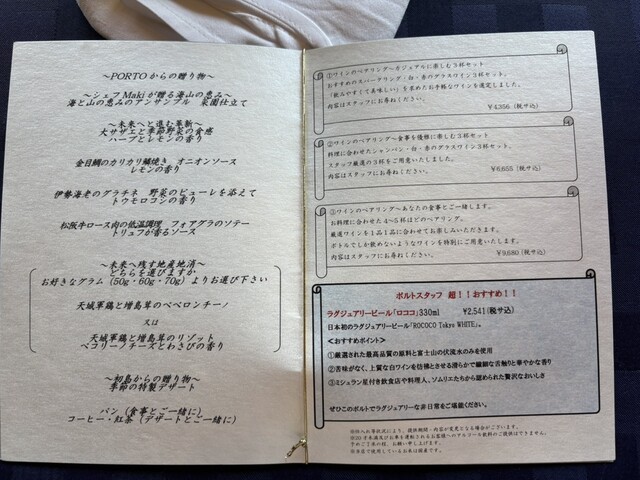 ～PORTOからの贈り物～
～シェフMakiが贈る海山の恵み～
海と山の恵みのアンサンブル　菜園仕立て
～未来へと進む革新～
大サザエと季節野菜の食感
ハーブとレモンの香り
金目鯛のカリカリ鱗焼き　オニオンソース
レモンの香り
伊勢海老のグラチネ　野菜のピューレを添えて
トウモロコシの香り
松阪牛ロース肉の低温調理　フォアグラのソテー
トリュフが香るソース
～未来へ残す地産地消～
どちらを選びますか
お好きなグラム（50g・60g・70g）よりお選び下さい
天城軍鶏と増島茸のペペロンチーノ
又は
天城軍鶏と増島茸のリゾット
ペコリーノチーズとわさびの香り
～初島からの贈り物～
季節の特製デザート
パン（食事とご一緒に）
コーヒー・紅茶（デザートとご一緒に）
①ワインのペアリング～カジュアルに楽しむ3杯セット
おすすめのスパークリング・白・赤のグラスワイン3杯セット。
「飲みやすくて美味しい」を求めたお手軽なワインを選定しました。
内容はスタッフにお尋ねください。
￥4,356（税サ込）
②ワインのペアリング～食事を優雅に楽しむ3杯セット
料理に合わせたシャンパン・白・赤のグラスワイン3杯セット。
スタッフ厳選の3杯をご用意いたしました。
内容はスタッフにお尋ねください。
￥6,655（税サ込）
③ワインのペアリング～あなたの食事とご一緒します。
お料理に合わせた4～5杯ほどのペアリング。
厳選ワインを1品1品に合わせてお楽しみいただきます。
ボトルでしか飲めないようなワインを特別にご用意いたします。
内容はスタッフにお尋ねください。
￥9,680（税サ込）
ポルトスタッフ　超！！おすすめ！！
ラグジュアリービール「ロココ」330ml　￥2,541(税サ込)
日本初のラグジュアリービール「ROCOCO Tokyo WHITE」。
＜おすすめポイント＞
①厳選された最高品質の原料と富士山の伏流水のみを使用
②苦味がなく、上質な白ワインを彷彿とさせる滑らかで繊細な舌触りと華やかな香り
③ミシュラン星付き飲食店や料理人、ソムリエたちから認められた贅沢なおいしさ
ぜひこのポルトでラグジュアリーな非日常をご堪能ください。
※仕入れ等状況により、提供期間・内容が変更となる場合がございます。
※20才未満及びお車を運転されるお客様へのアルコール飲料のご提供はできません。
予めご了承の程、お願い申し上げます。
※当店で使用しているお米は国産です。